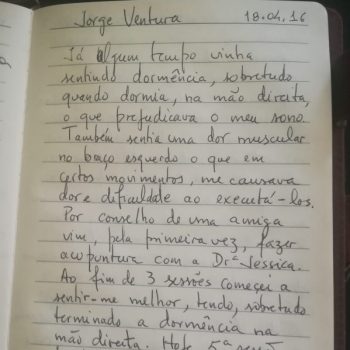 Jorge Ventura 18.04.16
Já algum tempo vinha
sentindo dormência, sobretudo
quando dormia, na mão direita,
o que prejudicava o meu sono.
Também sentia uma dor muscular
no braço esquerdo o que em
certos movimentos, me causava
dor e dificuldade ao executá-los.
Por conselho de uma amiga
vim, pela primeira vez, fazer
acupuntura com a Drª Jessica.
Ao fim de 3 sessões começei a
sentir-me melhor, tendo, sobretudo
terminado a dormência na
mão direita. Hoje 5ª